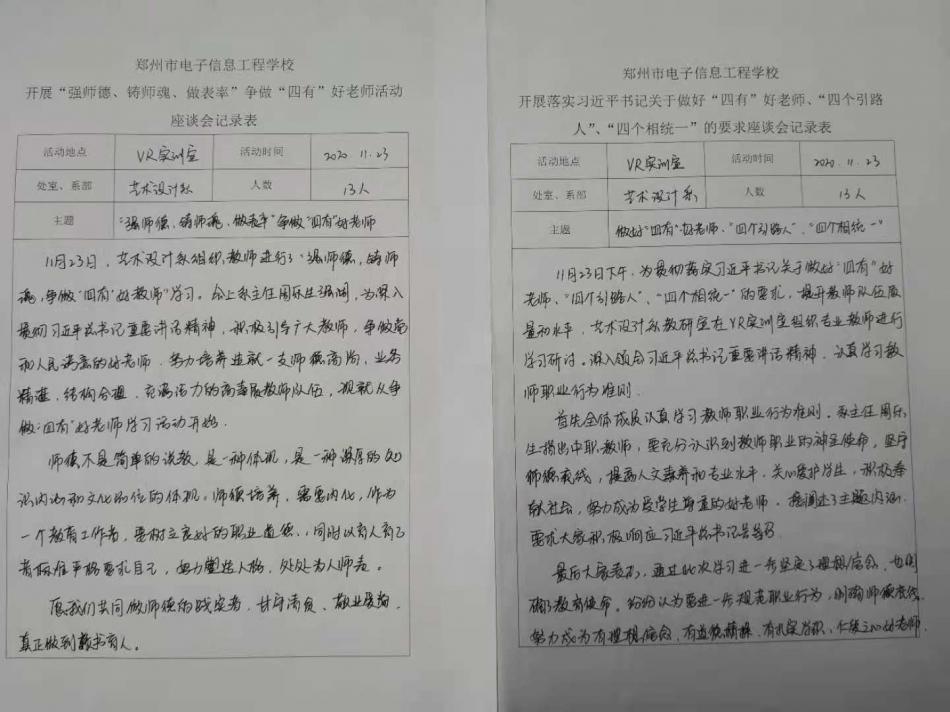 郑州市电子信息工程学校
开展“强师德、铸师魂、做表率”争做“四有”好老师活动
座谈会记录表
活动地点 VR实训室 活动时间 2020.11.23
处室、系部 艺术设计系 人数 13人
主题 “强师德、铸师魂、做表率”争做“四有”好老师
11月23日，艺术设计系组织教师进行了“强师德，铸师
魂，争做“四有”好教师”学习。会上系主任周乐生强调，为深入
贯彻习近平总书记重要讲话精神，积极引导广大教师，争做党
和人民满意的好老师，努力培养造就一支师德高尚，业务
精湛，结构合理，充满活力的高素质教师队伍，现就从争
做“四有”好老师学习活动开始．
师德不是简单的说教，是一种体现，是一种深厚的知
识内涵和文化品位的体现。师德培养，需要内化，作为
一个教育工作者，要树立良好的职业道德、，同时以育人育己
者标准严格要求自己，努力塑造人格，处处为人师表。
愿我们共同做师德的践定者，甘守清贫、敬业爱岗，
真正做到教书育人。
郑州市电子信息工程学校
开展落实习近平书记关于做好“四有”好老师、“四个引路
人”、“四个相统一”的要求座谈会记录表
活动地点 VR实训室 活动时间 2020.11.23
处室、系部 艺术设计系 人数 13人
主题 做好“四有”好老师、“四个引路人”、“四个相统一”
11月23日下午，为贯彻落实习近平书记关于做好“四有”好
老师、“四个引路人”、“四个相统一”的要求，提升教师队伍质
量和水平，艺术设计系教研室在VR实训室组织专业教师进行
学习研讨。深入领会习近平总书记重要讲话精神，认真学习教
师职业行为准则．
首先全体成员认真学习教师职业行为准则．系主任周乐
生指出中职教师，要充分认识到教师职业的神圣使命，坚守
师德底线，提高人文素养和专业水平．关心爱护学生，积极奉
献社会，努力成为受学生尊重的好老师．他阐述了主题内涵
要求大家积极响应习近平总书记号召
最后大家表示，通过此次学习进一步坚定了理想信念，也明
确了教育使命．纷纷认为要进一步规范职业行为，明确师德底线
努力成为有理想信念，有道德情操，有扎实学识、仁爱之心好老师．